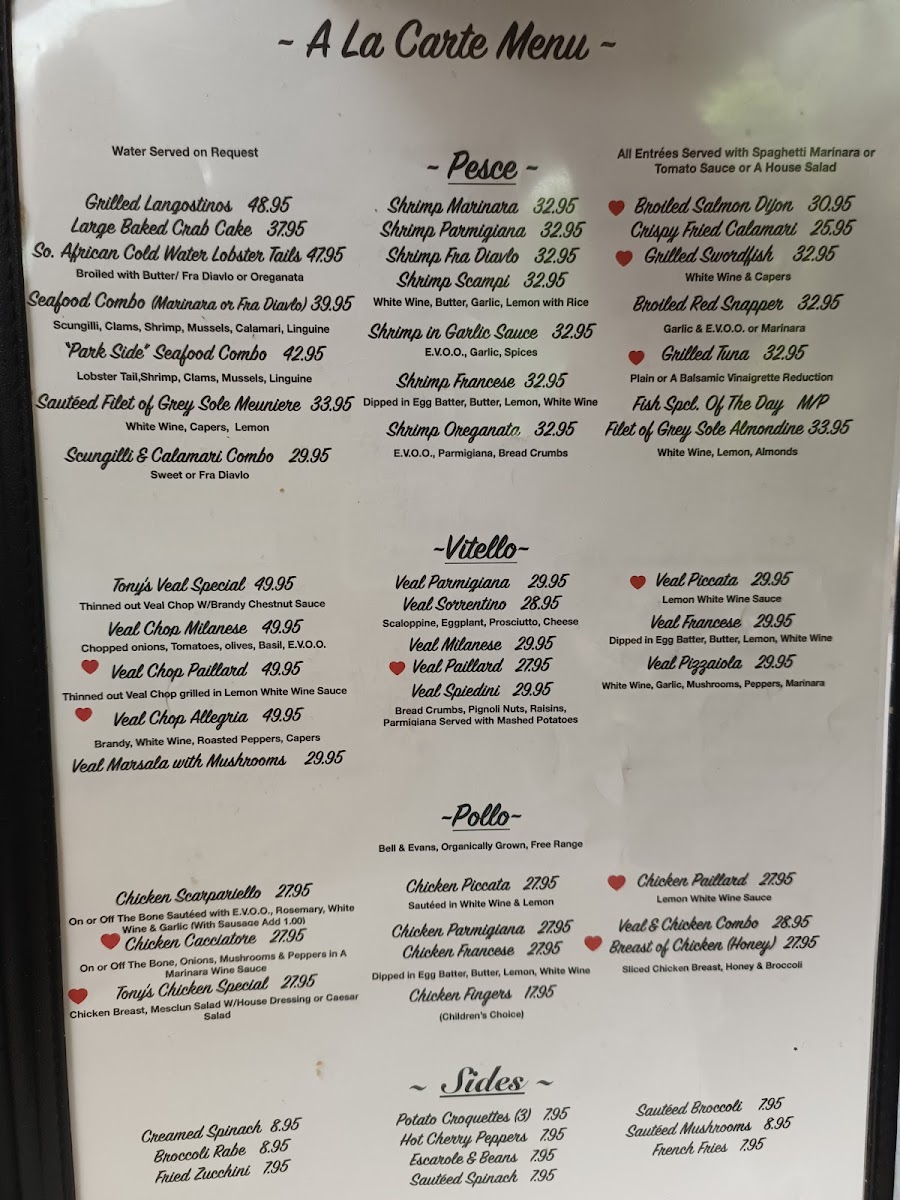 ~ A La Carte Menu ~
Water Served on Request
~ Pesce ~
All Entrées Served with Spaghetti Marinara or
Tomato Sauce or A House Salad
Grilled Langostinos 48.95
Large Baked Crab Cake 37.95
So. African Cold Water Lobster Tails 47.95
Broiled with Butter/ Fra Diavlo or Oreganata
Seafood Combo (Marinara or Fra Diavlo) 39.95
Scungilli, Clams, Shrimp, Mussels, Calamari, Linguine
"Park Side" Seafood Combo 42.95
Lobster Tail,Shrimp, Clams, Mussels, Linguine
Sautéed Filet of Grey Sole Meuniere 33.95
White Wine, Capers, Lemon
Scungilli & Calamari Combo 29.95
Sweet or Fra Diavlo
Shrimp Marinara 32.95
Shrimp Parmigiana 32.95
Shrimp Fra Diavlo 32.95
Shrimp Scampi 32.95
White Wine, Butter, Garlic, Lemon with Rice
Shrimp in Garlic Sauce 32.95
E.V.O.O., Garlic, Spices
Shrimp Francese 32.95
Dipped in Egg Batter, Butter, Lemon, White Wine
Shrimp Oreganata 32.95
E.V.O.O., Parmigiana, Bread Crumbs
Broiled Salmon Dijon 30.95
Crispy Fried Calamari 25.95
Grilled Swordfish 32.95
White Wine & Capers
Broiled Red Snapper 32.95
Garlic & E.V.O.O. or Marinara
Grilled Tuna 32.95
Plain or A Balsamic Vinaigrette Reduction
Fish Spcl. Of The Day M/P
Filet of Grey Sole Almondine 33.95
White Wine, Lemon, Almonds
~Vitello~
Tony's Veal Special 49.95
Thinned out Veal Chop W/Brandy Chestnut Sauce
Veal Chop Milanese 49.95
Chopped onions, Tomatoes, olives, Basil, E.V.O.O.
Veal Chop Paillard 49.95
Thinned out Veal Chop grilled in Lemon White Wine Sauce
Veal Chop Allegria 49.95
Brandy, White Wine, Roasted Peppers, Capers
Veal Marsala with Mushrooms 29.95
Veal Parmigiana 29.95
Veal Sorrentino 28.95
Scaloppine, Eggplant, Prosciutto, Cheese
Veal Milanese 29.95
Veal Paillard 27.95
Veal Spiedini 29.95
Bread Crumbs, Pignoli Nuts, Raisins,
Parmigiana Served with Mashed Potatoes
Veal Piccata 29.95
Lemon White Wine Sauce
Veal Francese 29.95
Dipped in Egg Batter, Butter, Lemon, White Wine
Veal Pizzaiola 29.95
White Wine, Garlic, Mushrooms, Peppers, Marinara
~Pollo~
Bell & Evans, Organically Grown, Free Range
Chicken Scarpariello 27.95
On or Off The Bone Sautéed with E.V.O.O., Rosemary, White
Wine & Garlic (With Sausage Add 1.00)
Chicken Cacciatore 27.95
On or Off The Bone, Onions, Mushrooms & Peppers in A
Marinara Wine Sauce
Tony's Chicken Special 27.95
Chicken Breast, Mesclun Salad W/House Dressing or Caesar
Salad
Chicken Piccata 27.95
Sautéed in White Wine & Lemon
Chicken Parmigiana 27.95
Chicken Francese 27.95
Dipped in Egg Batter, Butter, Lemon, White Wine
Chicken Fingers 17.95
(Children's Choice)
Chicken Paillard 27.95
Lemon White Wine Sauce
Veal & Chicken Combo 28.95
Breast of Chicken (Honey) 27.95
Sliced Chicken Breast, Honey & Broccoli
~ Sides ~
Creamed Spinach 8.95
Broccoli Rabe 8.95
Fried Zucchini 7.95
Potato Croquettes (3) 7.95
Hot Cherry Peppers 7.95
Escarole & Beans 7.95
Sautéed Spinach 7.95
Sautéed Broccoli 7.95
Sautéed Mushrooms 8.95
French Fries 7.95